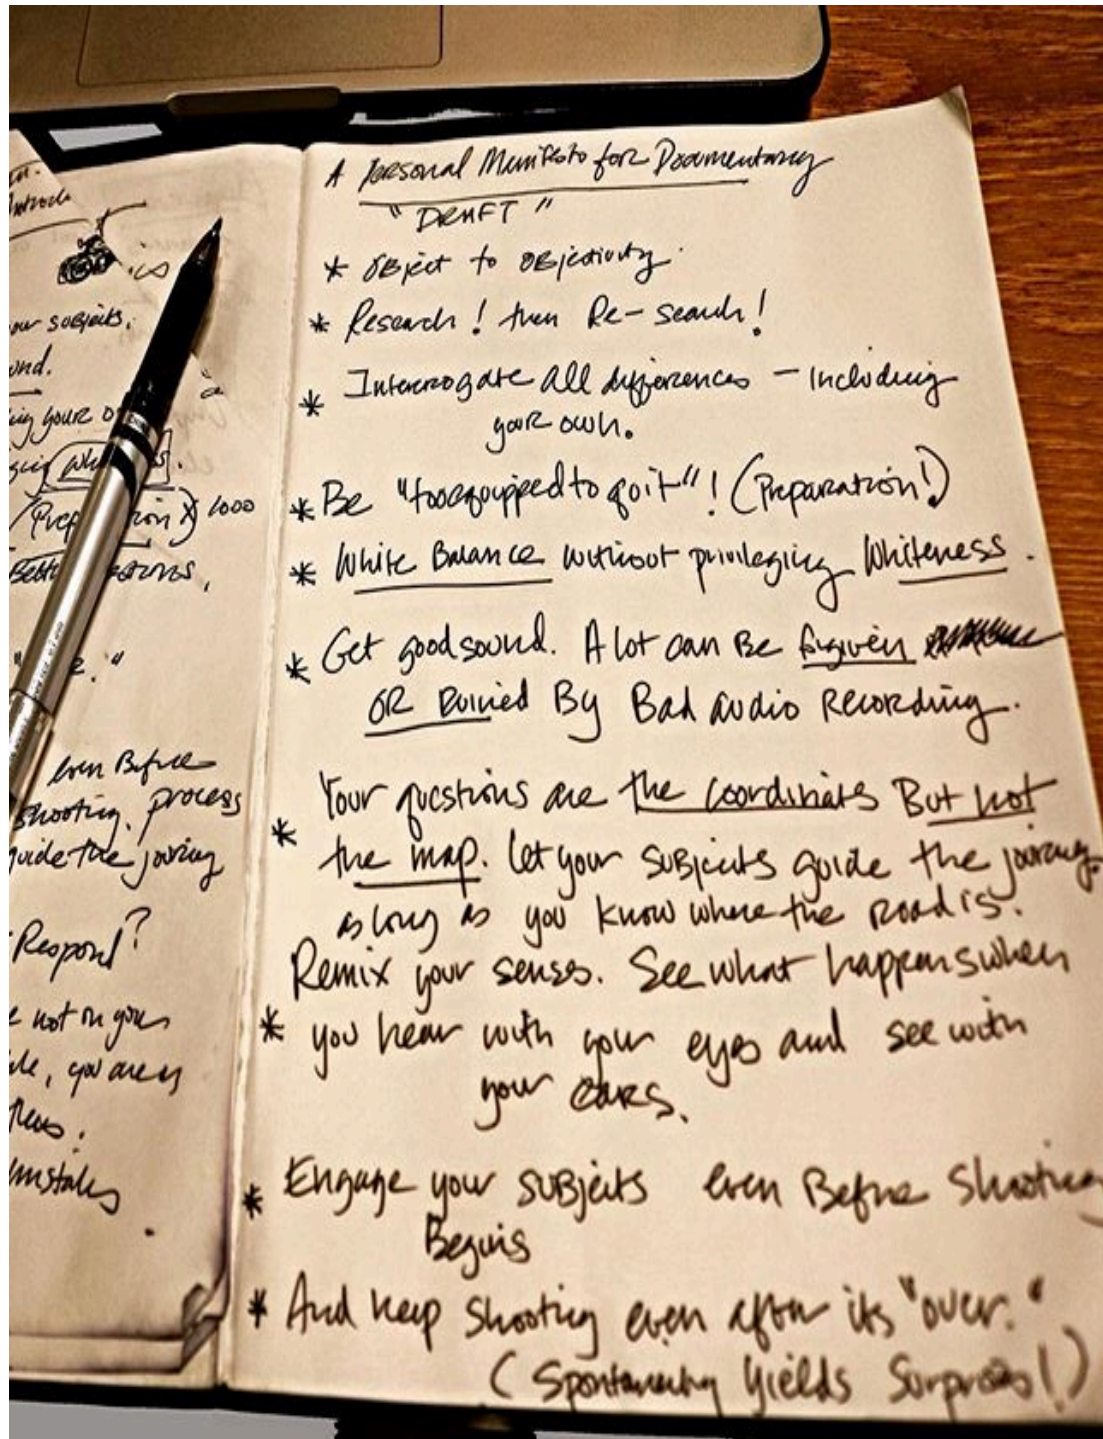 ntrodu
is
our subjects.
und.
ing your o
(Prep tion X) 1000
Bett estions,
e."
even Before
shooting process
guide the journey
Respond?
e not on your
le, you are as
mistakes
A Personal Manifesto for Documentary
"DRAFT"
* Object to objectivity.
* Research! then Re-search!
* Interrogate All differences – Including
your own.
* Be "too equipped to quit"! (Preparation!)
* White Balance without privileging Whiteness.
* Get good sound. A lot can Be forgiven
OR Ruined By Bad audio Recording.
Your questions are the coordinates But not
* the map. Let your subjects guide the journey.
as long as you know where the road is.
Remix your senses. See what happens when
* you hear with your eyes and see with
your ears.
* Engage your subjects even Before Shooting
Begins
* And keep shooting even after its "over."
(Spontaneity Yields Surprises!)